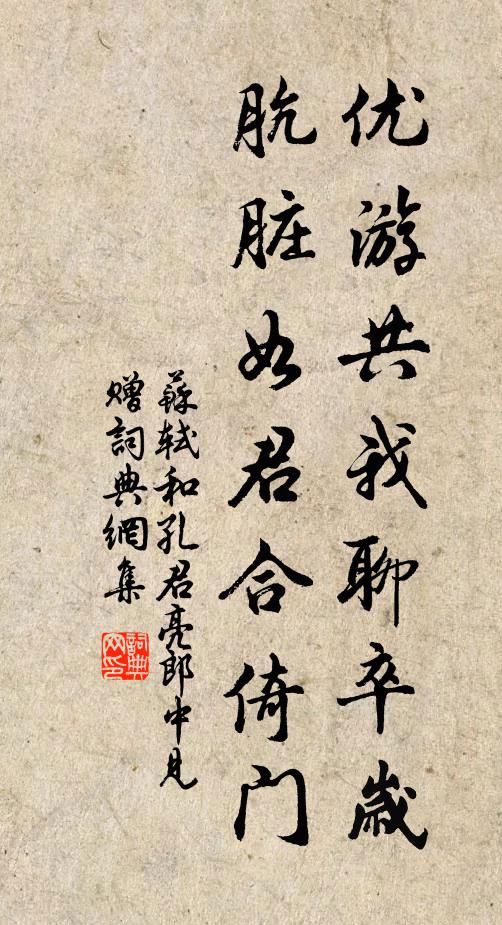 优游共我聊卒岁
肮脏如君合倚门
蘇轼和孔君亮郎中见
赠詞典網集
詞典
网印